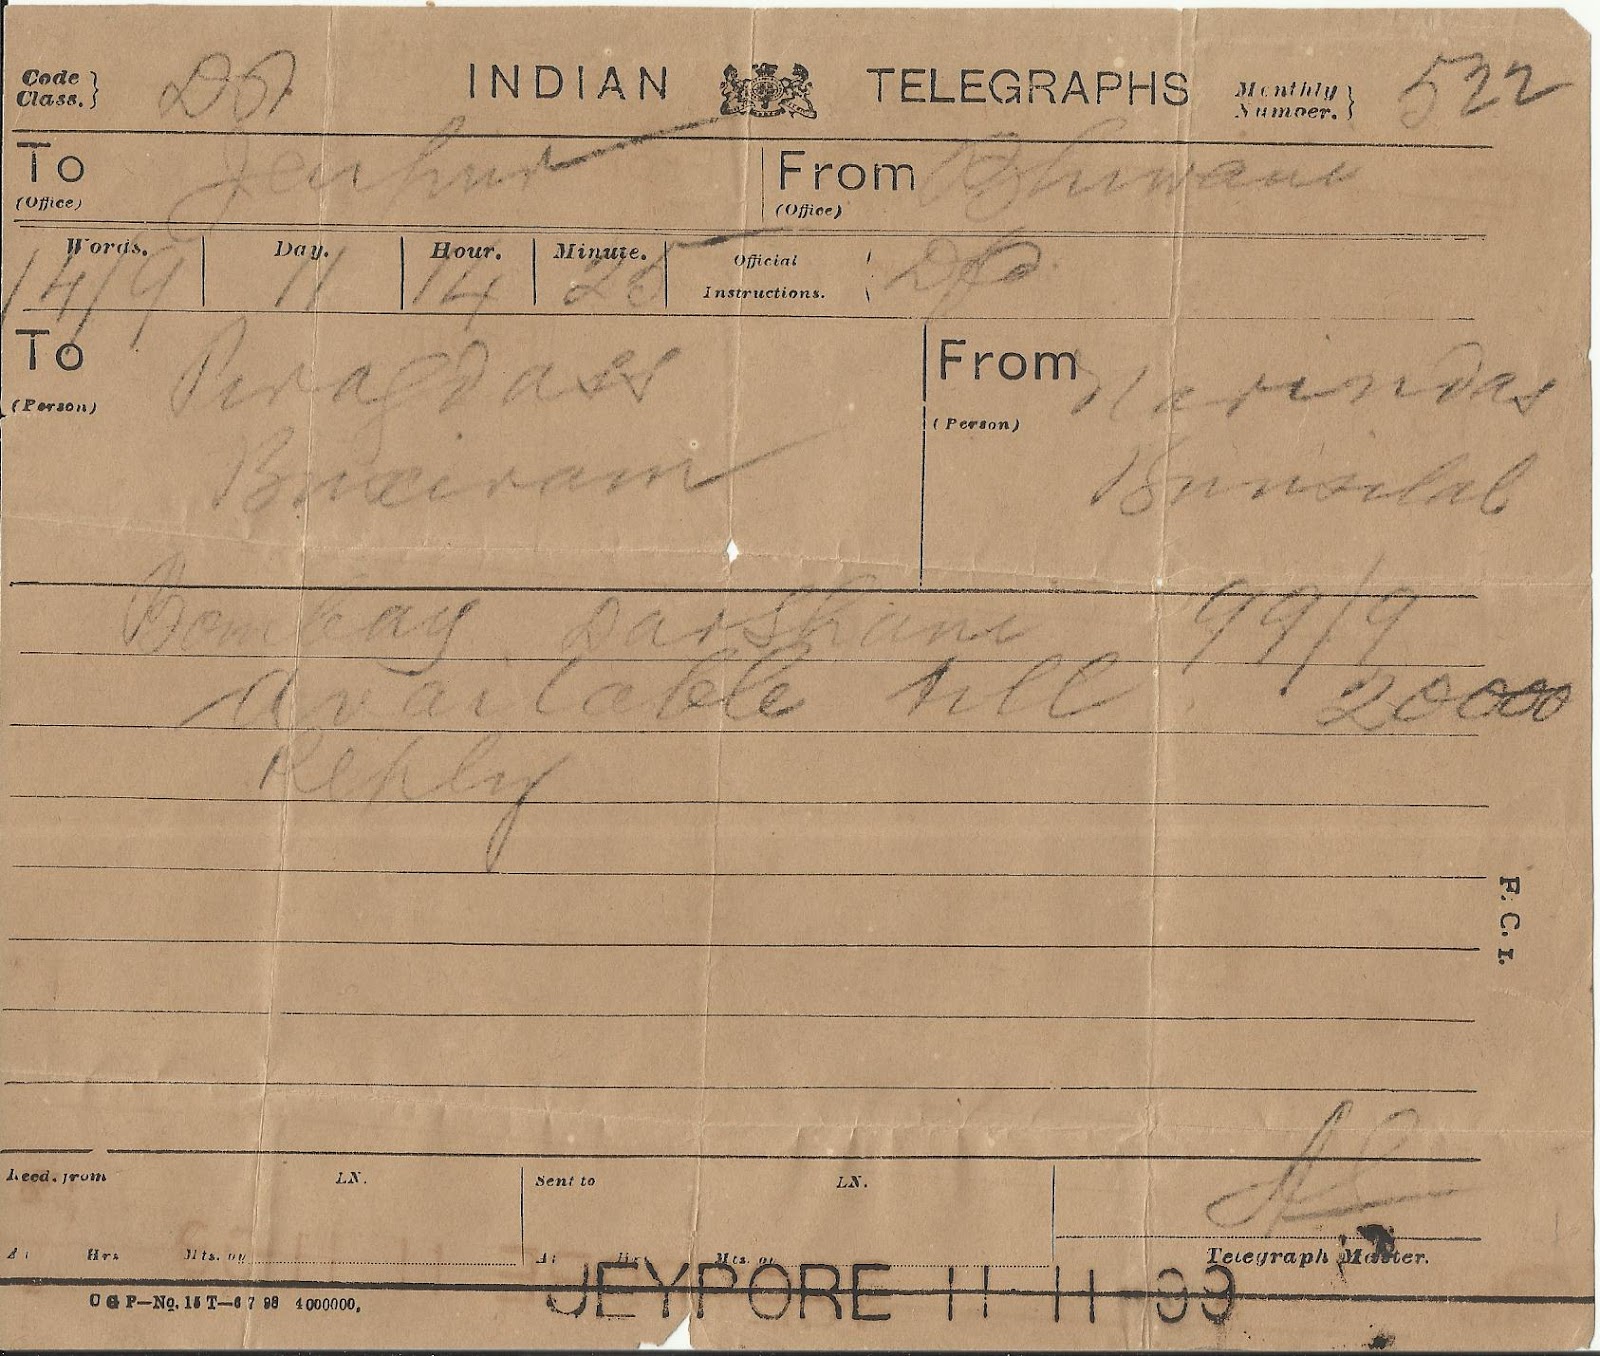 Code Class.} INDIAN TELEGRAPHS Monthly Number.} 522
To (Office) Jeypur From (Office) Bhiwani
Words. Day. Hour. Minute. Official Instructions.
14/9 11 14 25
To (Person) Piragdass From (Person) Narindas
Buxiram Bunsilal
Bombay Darshani 99/9
available till 20000
Reply
F. C. 1.
Recd. from LN. Sent to LN.
At Hrs Mts. by At Hrs Mts. by Telegraph Master.
JEYPORE 11-11-99
C G P—No. 15 T—6 7 98 4000000.